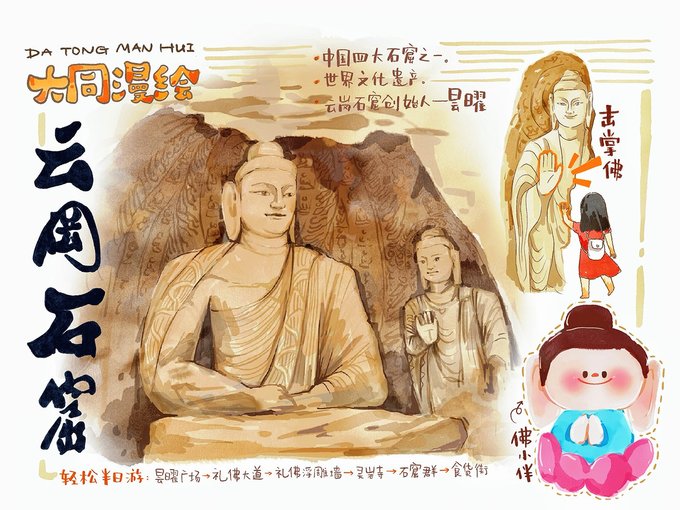 DA TONG MAN HUI
大同漫绘
云冈石窟
·中国四大石窟之一.
·世界文化遗产.
·云岗石窟创始人—昙曜
击掌佛
佛小伴
轻松半日游:昙曜广场→礼佛大道→礼佛浮雕墙→灵岩寺→石窟群→食货街